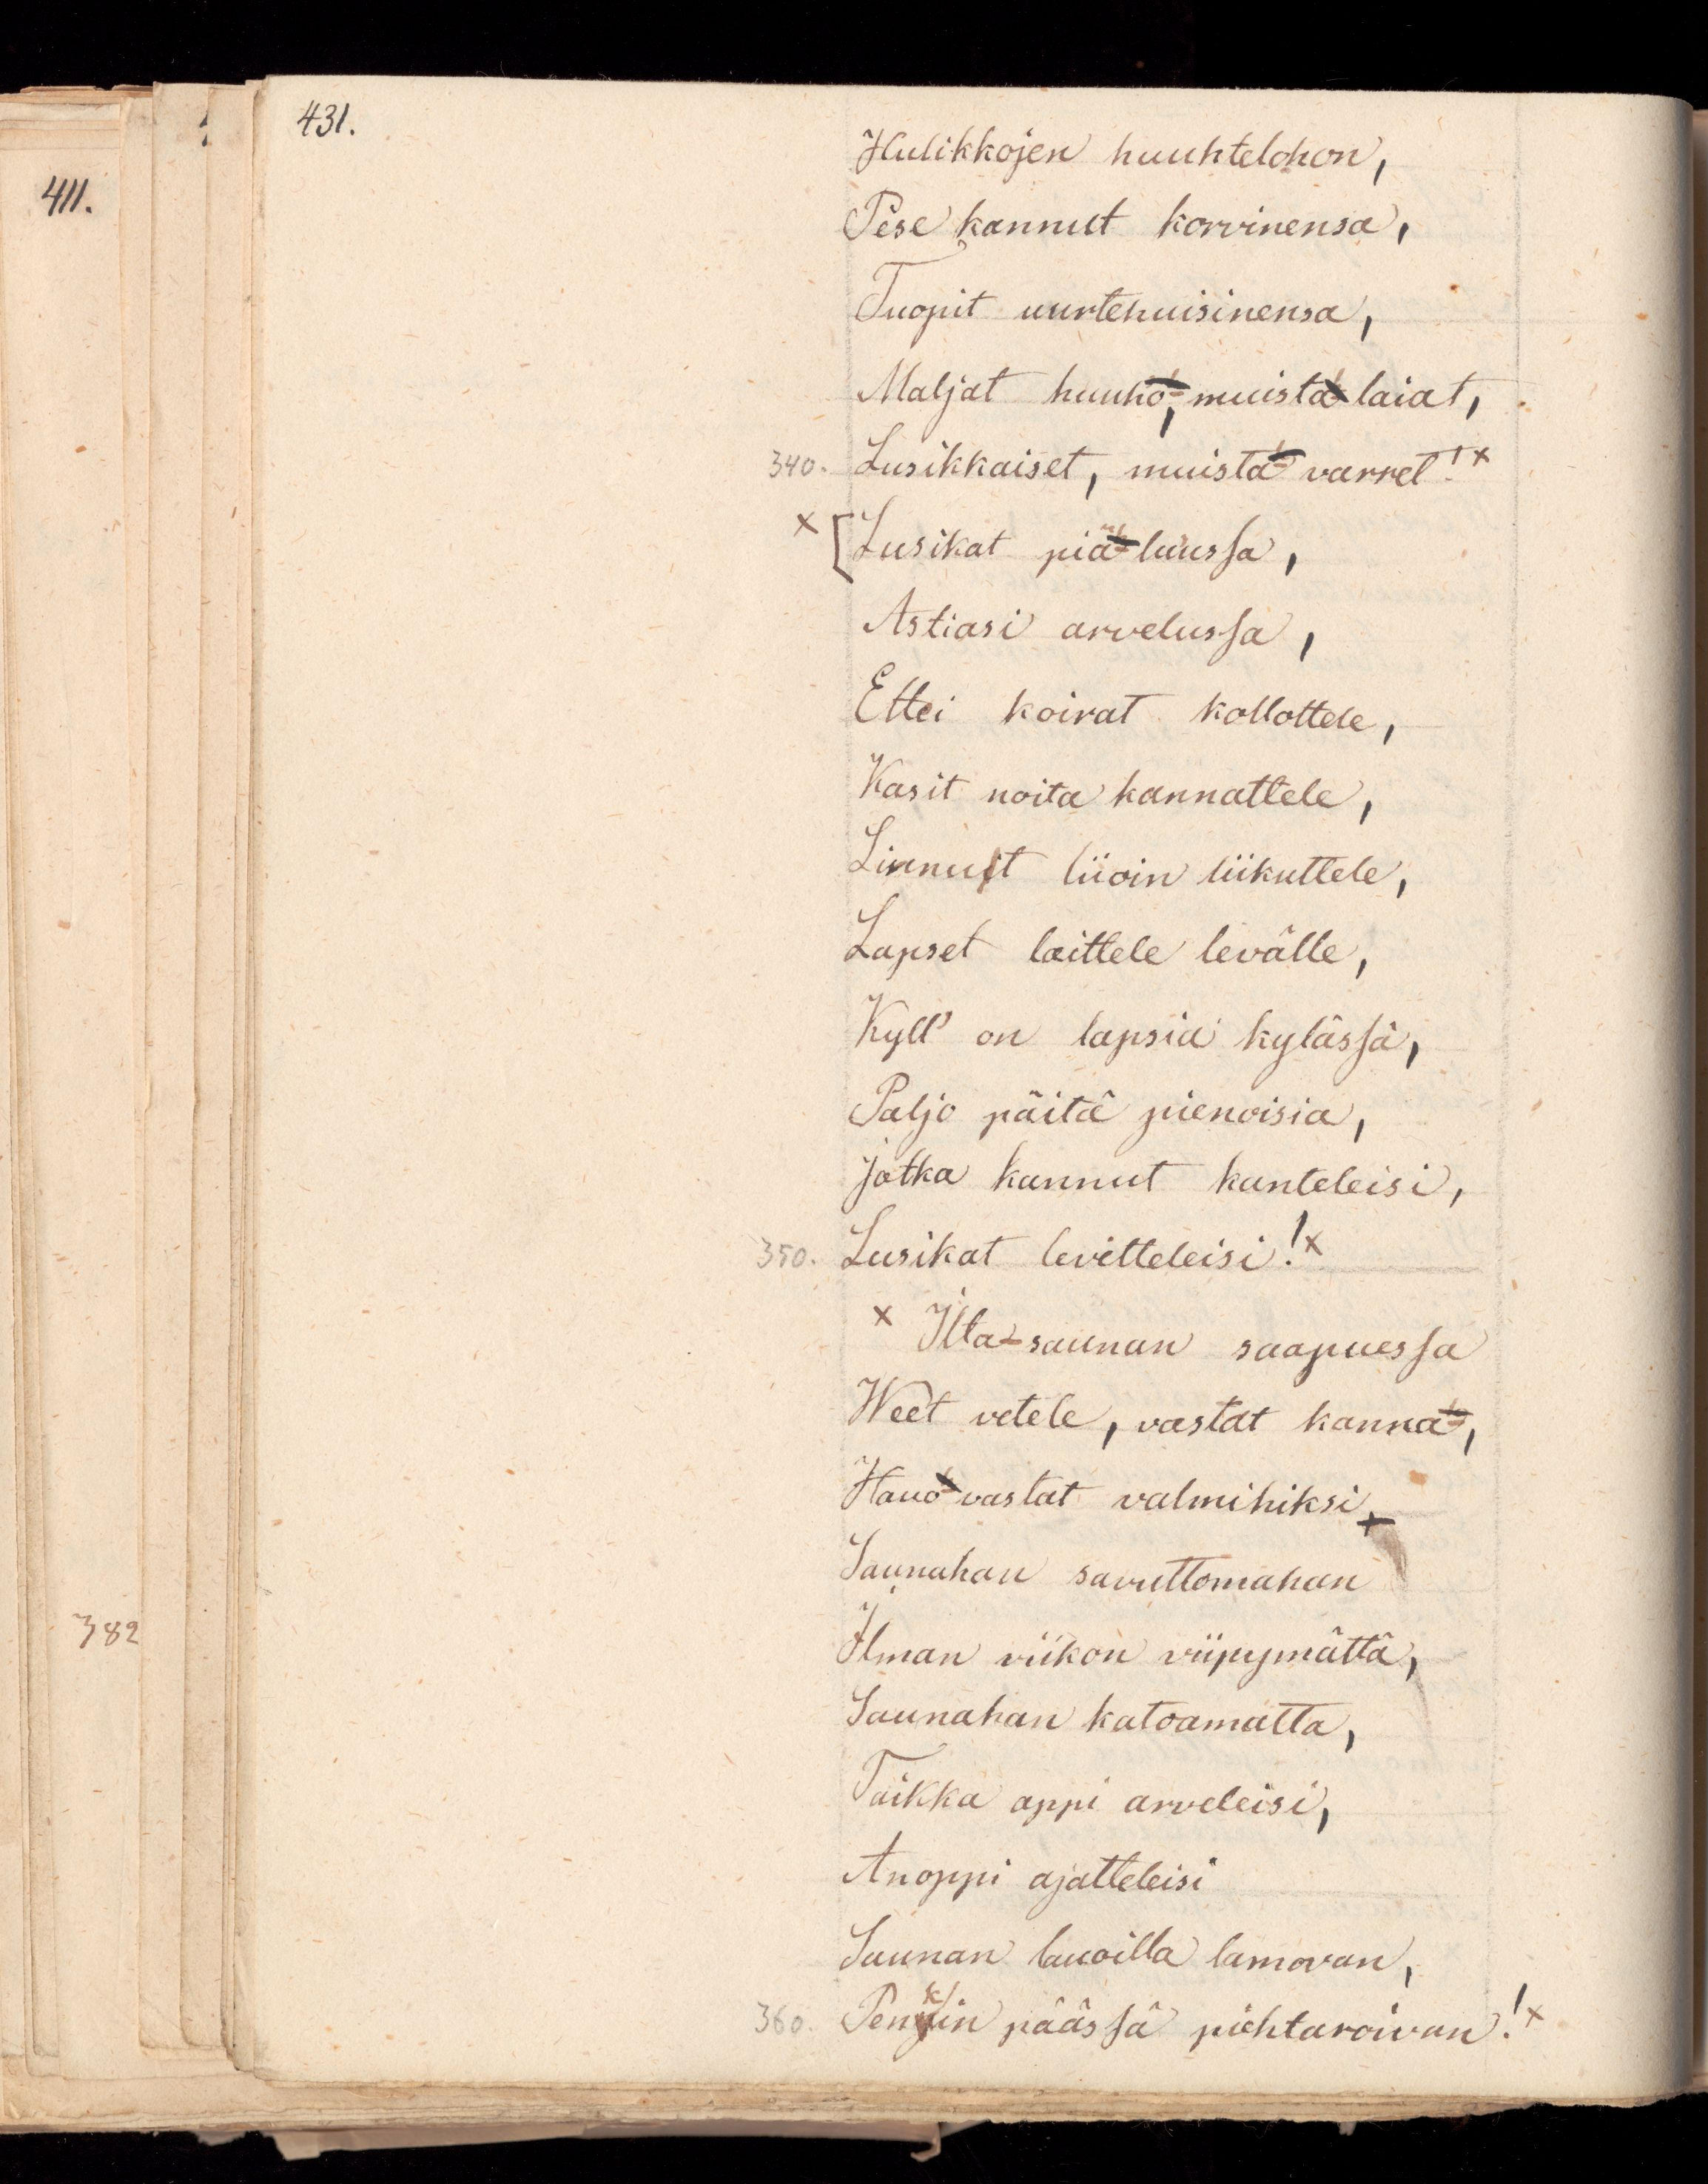 431.
411.
382
Hulikkojen huuhtelohon,
Pese kannut korvinensa,
Tuopit uurtehuisinensa,
Maljat huuho, muista laiat,
340. Lusikkaiset, muista varret! x
x [Lusikat piä luussa,
Astiasi arvelussa,
Ettei koirat kollottele,
Kasit noita kannattele,
Linnut liioin liikuttele,
Lapset laittele levälle,
Kyll' on lapsia kylässä,
Paljo päitä pienoisia,
Jotka kannut kanteleisi,
350. Lusikat levitteleisi! x
x Ilta-saunan saapuessa
Weet vetele, vastat kanna,
Hauo vastat valmihiksi
Saunahan savuttomahan
Ilman viikon viipymättä,
Saunahan katoamatta,
Taikka appi arveleisi,
Anoppi ajatteleisi
Saunan lauoilla lamovan,
360. Penkin päässä piehtaroivan! x